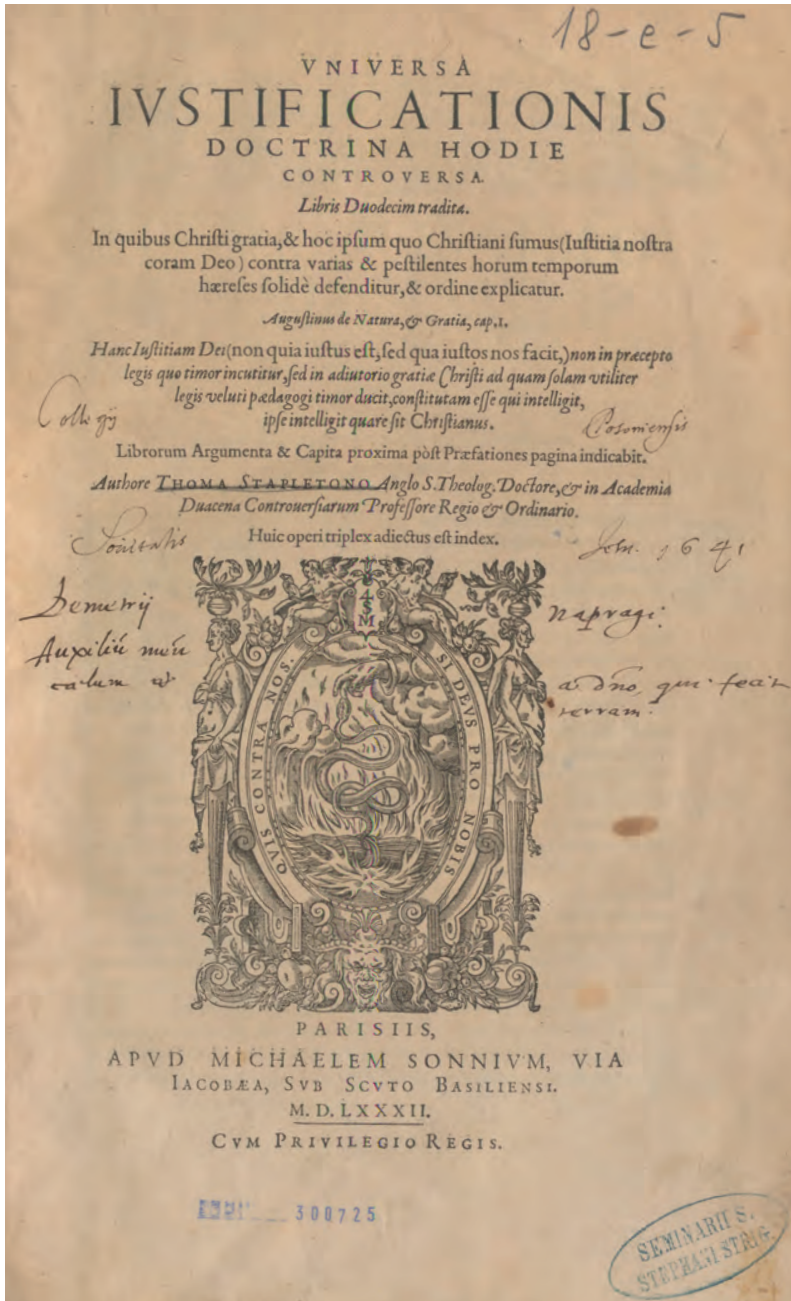 18-e-5
VNIVERSA
IVSTIFICATIONIS
DOCTRINA HODIE
CONTROVERSA.
Libris Duodecim tradita.
In quibus Christi gratia, & hoc ipsum quo Christiani sumus (Iustitia nostra
coram Deo) contra varias & pestilentes horum temporum
hæreses solidè defenditur, & ordine explicatur.
Augustinus de Natura, & Gratia, cap. 1.
Hanc Iustitiam Dei (non quia iustus est, sed qua iustos nos facit,) non in præcepto
legis quo timor incutitur, sed in adiutorio gratiæ Christi ad quam solam vtiliter
legis veluti pædagogi timor ducit, constitutam esse qui intelligit,
ipse intelligit quare sit Christianus.
Collegij Posoniensis
Librorum Argumenta & Capita proxima pòst Præfationes pagina indicabit.
Authore THOMA STAPLETONO Anglo S. Theolog. Doctore, & in Academia
Duacena Controuersiarum Professore Regio & Ordinario.
Huic operi triplex adiectus est index.
Societatis Jesu. 1641
Demetrij Napragi.
Auxiliũ meũ a dño, qui fecit
cælum et terram.
4
S
M
QVIS CONTRA NOS. SI DEVS PRO NOBIS
PARISIIS,
APVD MICHAELEM SONNIVM, VIA
IACOBÆA, SVB SCVTO BASILIENSI.
M. D. LXXXII.
CVM PRIVILEGIO REGIS.
300725
SEMINARII S.
STEPHANI STRIG.